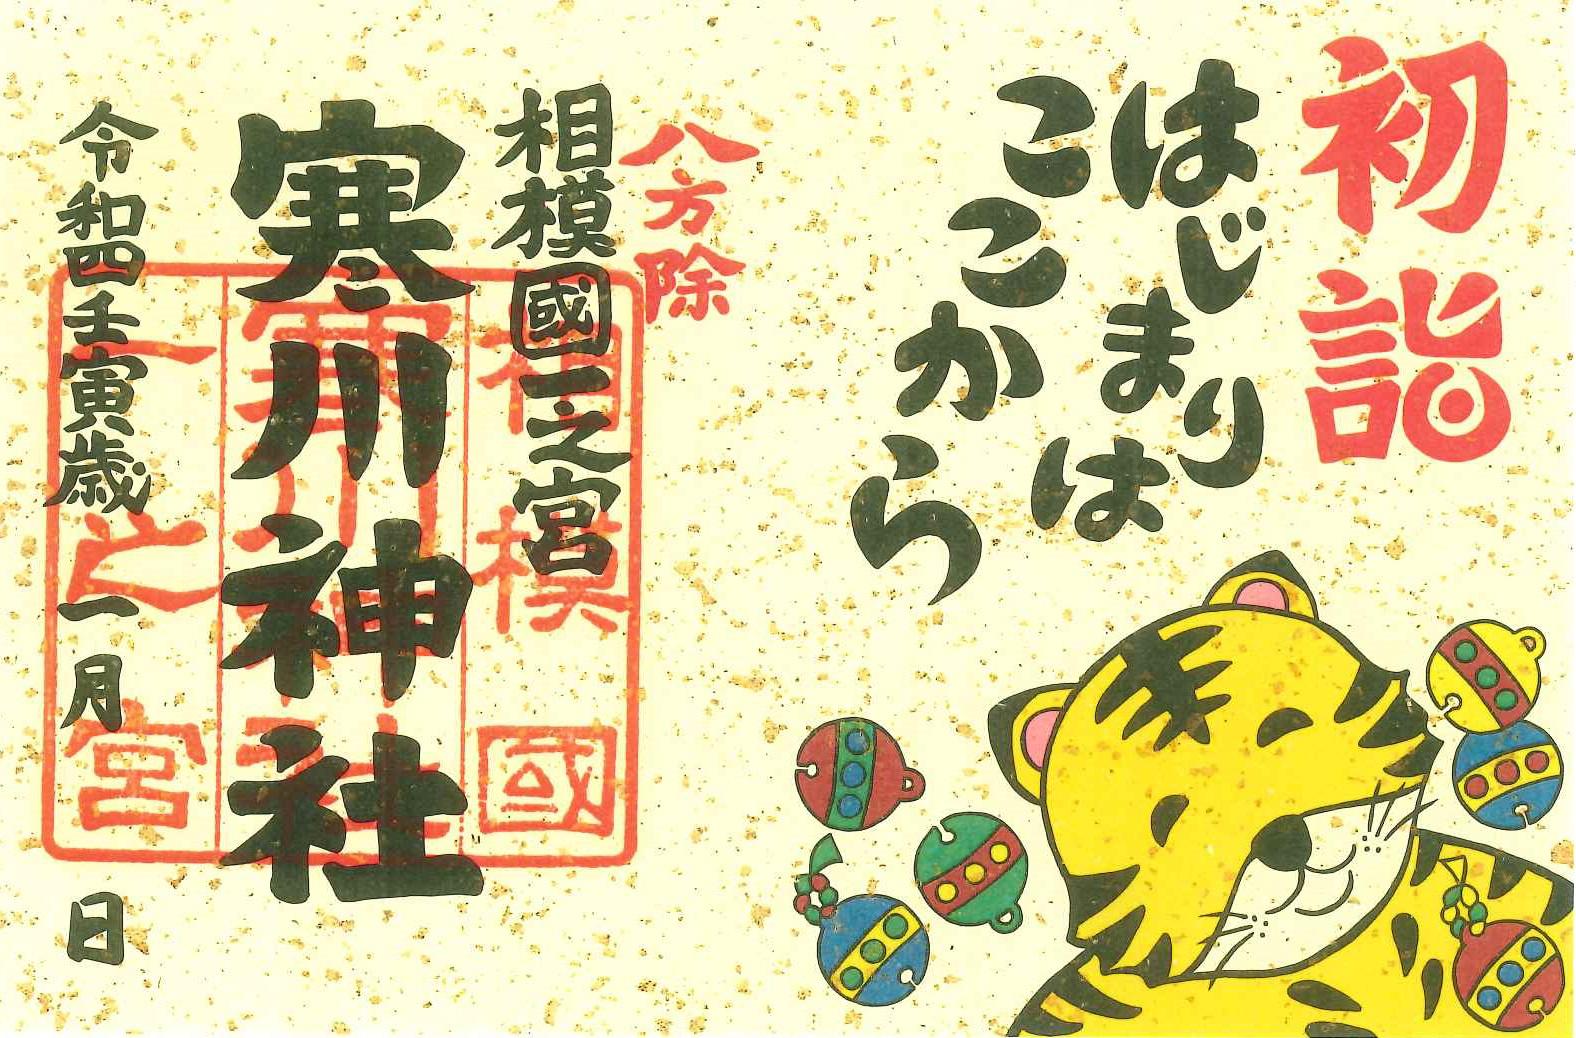 初詣
はじまりは
ここから
八方除
相模國一之宮
寒川神社
令和四壬寅歳一月 日
相模國
寒川神社
一之宮